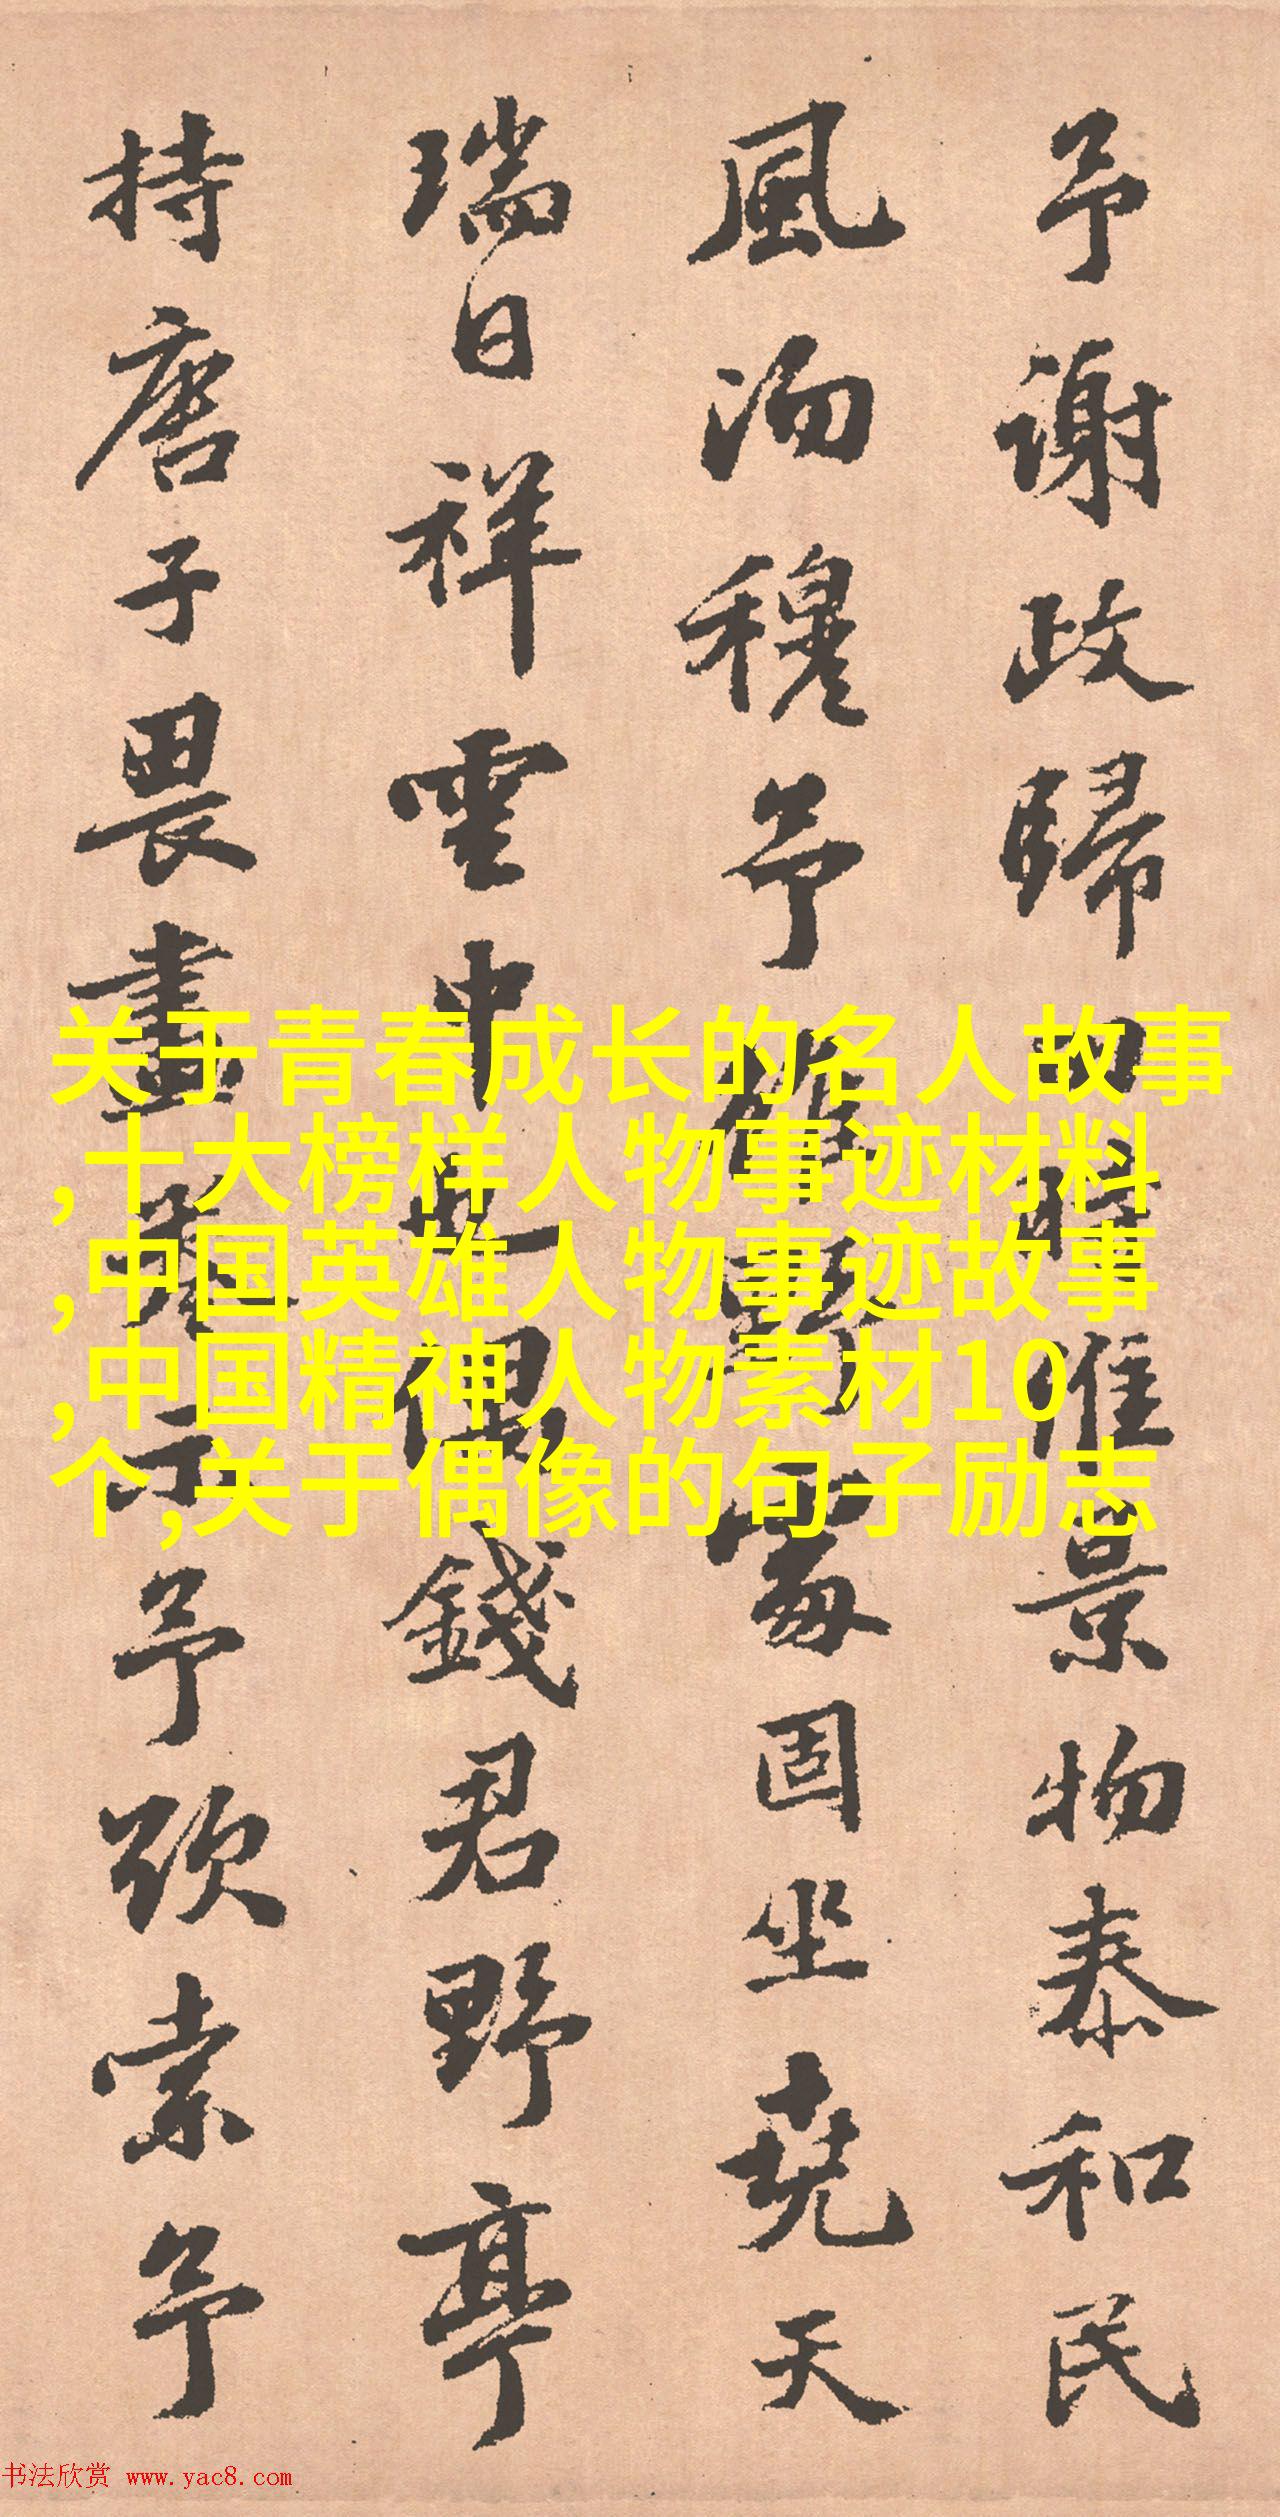 予謝政歸田時惟景物泰和民
風沕穆予處固坐堯天
瑞日祥雲中也偶錢君野亭
持唐子畏畫卷示予索予
关于青春成长的名人故事
,十大榜样人物事迹材料
,中国英雄人物事迹故事
,中国精神人物素材10
个,关于偶像的句子励志
书法欣赏 www.yac8.com